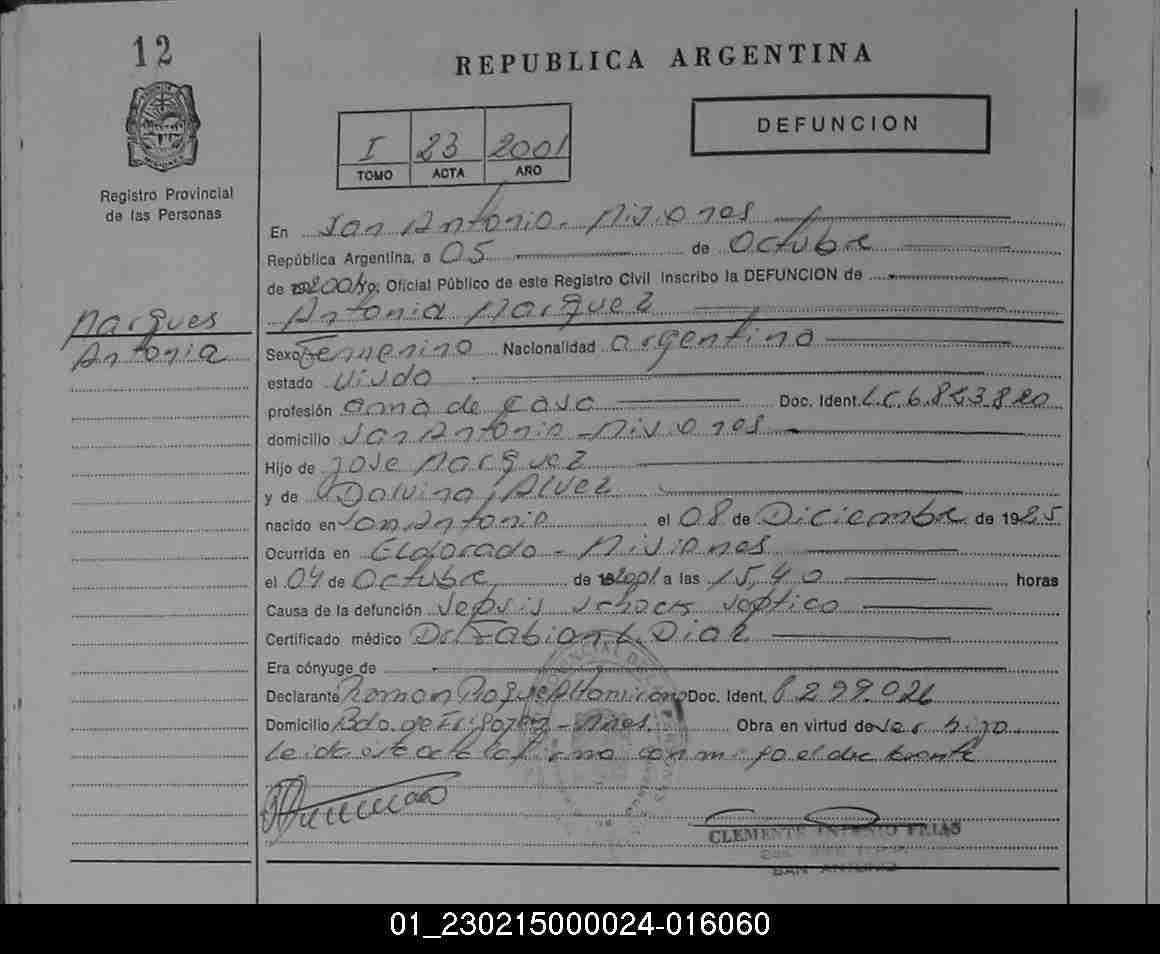 12
REPUBLICA ARGENTINA
DEFUNCION
I 23 2001
TOMO ACTA AÑO
Registro Provincial
de las Personas
Marques
Antonia
En San Antonio - Misiones
República Argentina, a 05 de Octubre
de 2001 yo, Oficial Público de este Registro Civil Inscribo la DEFUNCION de
Antonia Marquez
Sexo Femenino Nacionalidad argentina
estado viuda
profesión ama de casa Doc. Ident. L.C.
domicilio San Antonio - Misiones
Hijo de Jose Marquez
y de Dolvina Alvez
nacido en San Antonio el 08 de Diciembre de 1925
Ocurrida en Eldorado - Misiones
el 04 de Octubre de 2001 a las 15,40 horas
Causa de la defunción sepsis schock septico
Certificado médico Dr. Fabian L. Diaz
Era cónyuge de
Declarante Ramon Roque Altamirano Doc. Ident. 8.299.026
Domicilio Bdo. de Irigoyen - Mnes. Obra en virtud de ser hijo
Leida este acta la firma conmigo el declarante
CLEMENTE FRIAS
SAN ANTONIO
01_230215000024-016060